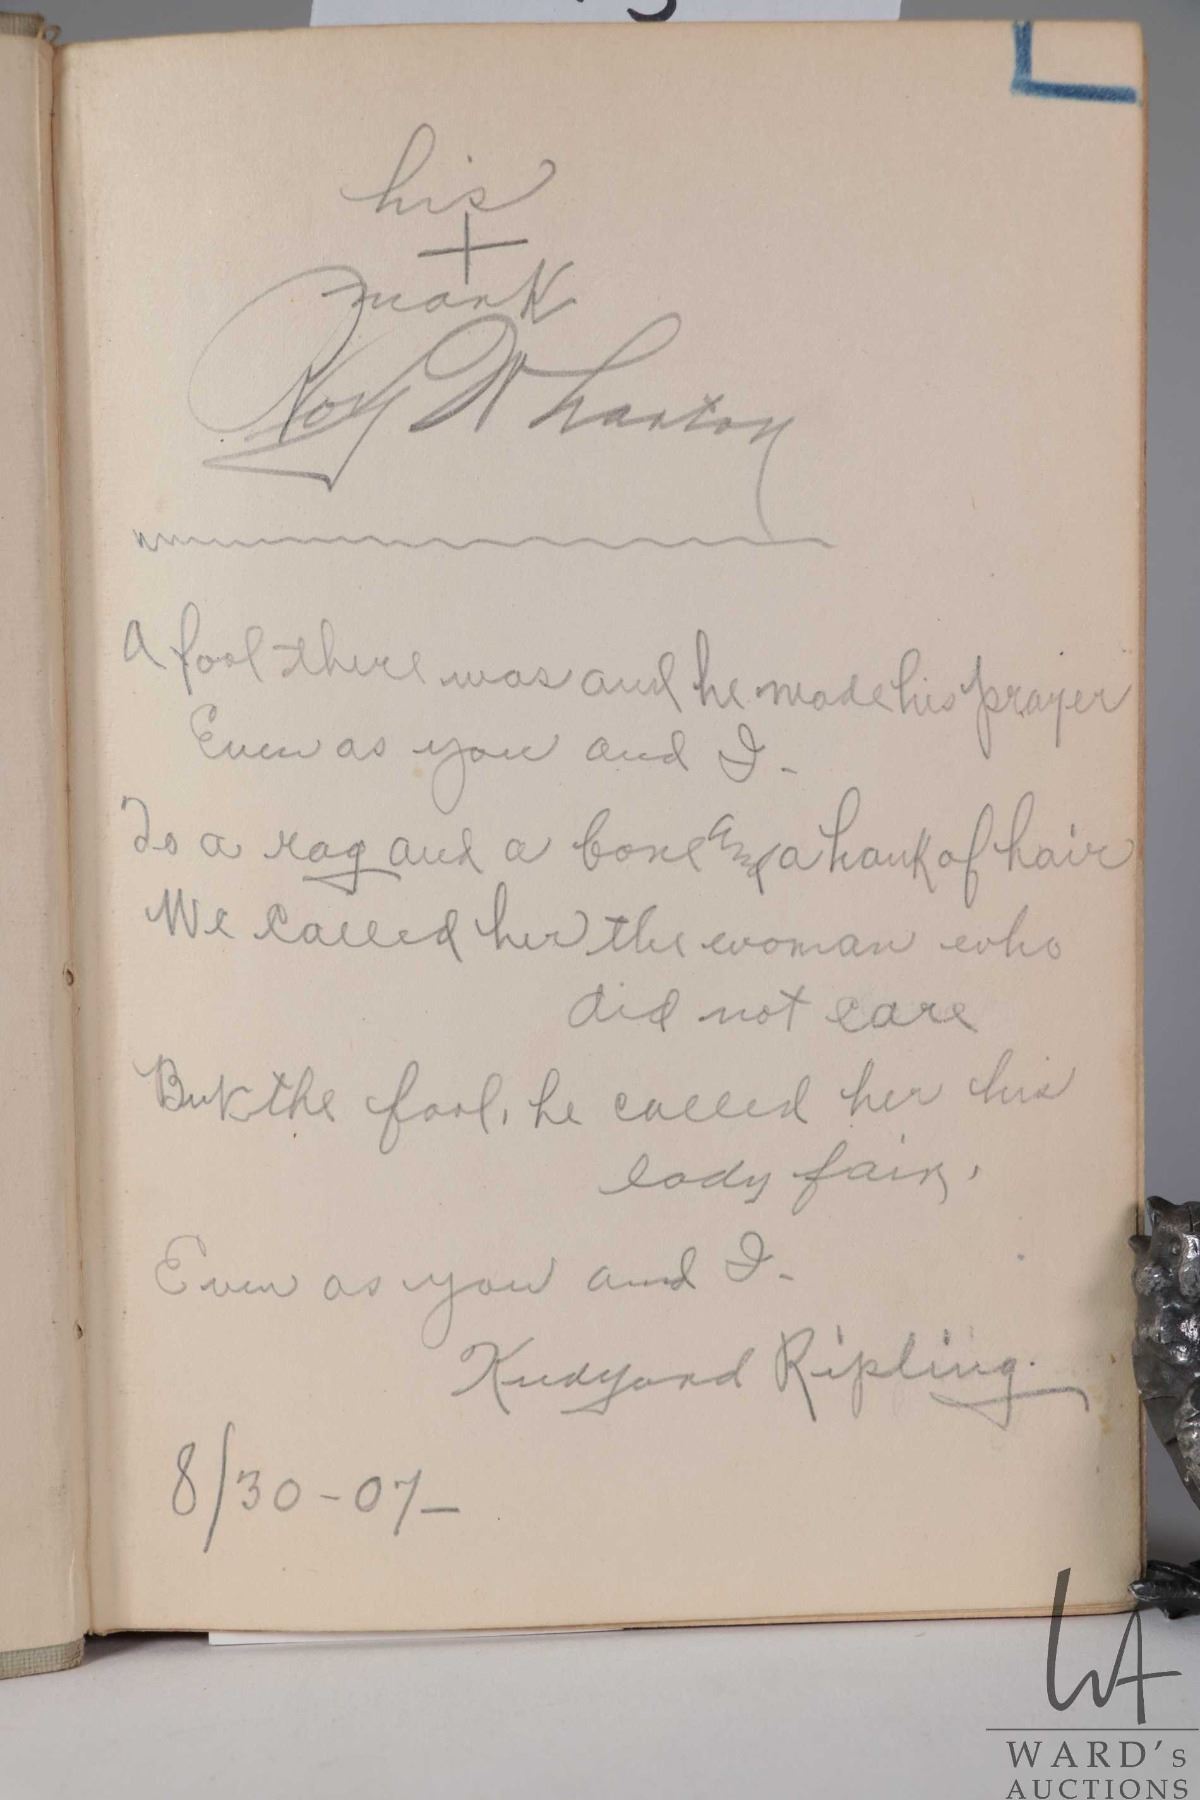 his
+
mark
Roy Wharton
A fool there was and he made his prayer
Even as you and I-
To a rag and a bone and a hank of hair
We called her the woman who
did not care
But the fool, he called her his
lady fair,
Even as you and I-
Rudyard Kipling.
8/30-07-
WA
WARD's
AUCTIONS